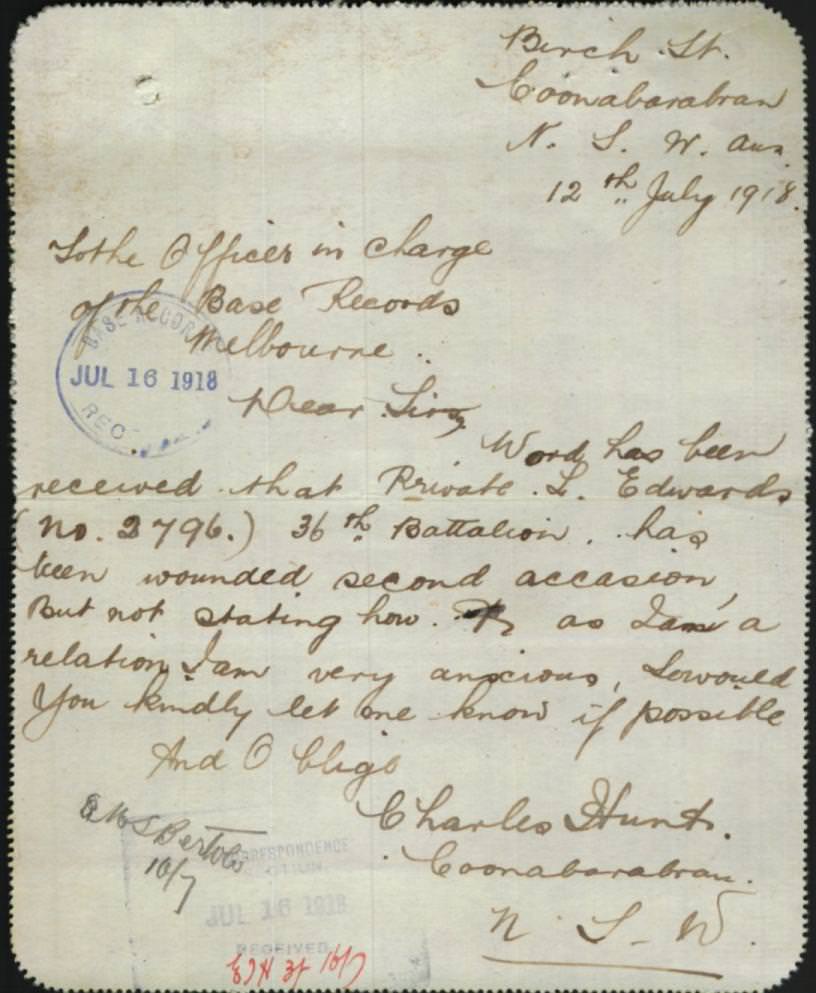 Birch St.
Coonabarabran
N. S. W. Aus.
12th July 1918.
To the Officer in charge
of the Base Records
Melbourne.
BASE RECORDS
JUL 16 1918
REC
Dear Sir,
Word has been
received that Private L. Edwards
(No. 2796.) 36th Battalion. has
been wounded second accasion,
But not stating how. as I am a
relation I am very anxious, So would
You kindly let me know if possible
And Oblige
Charles Hunt.
Coonabarabran.
N. S. W.
16/7
CORRESPONDENCE
JUL 16 1918
RECEIVED
16/7